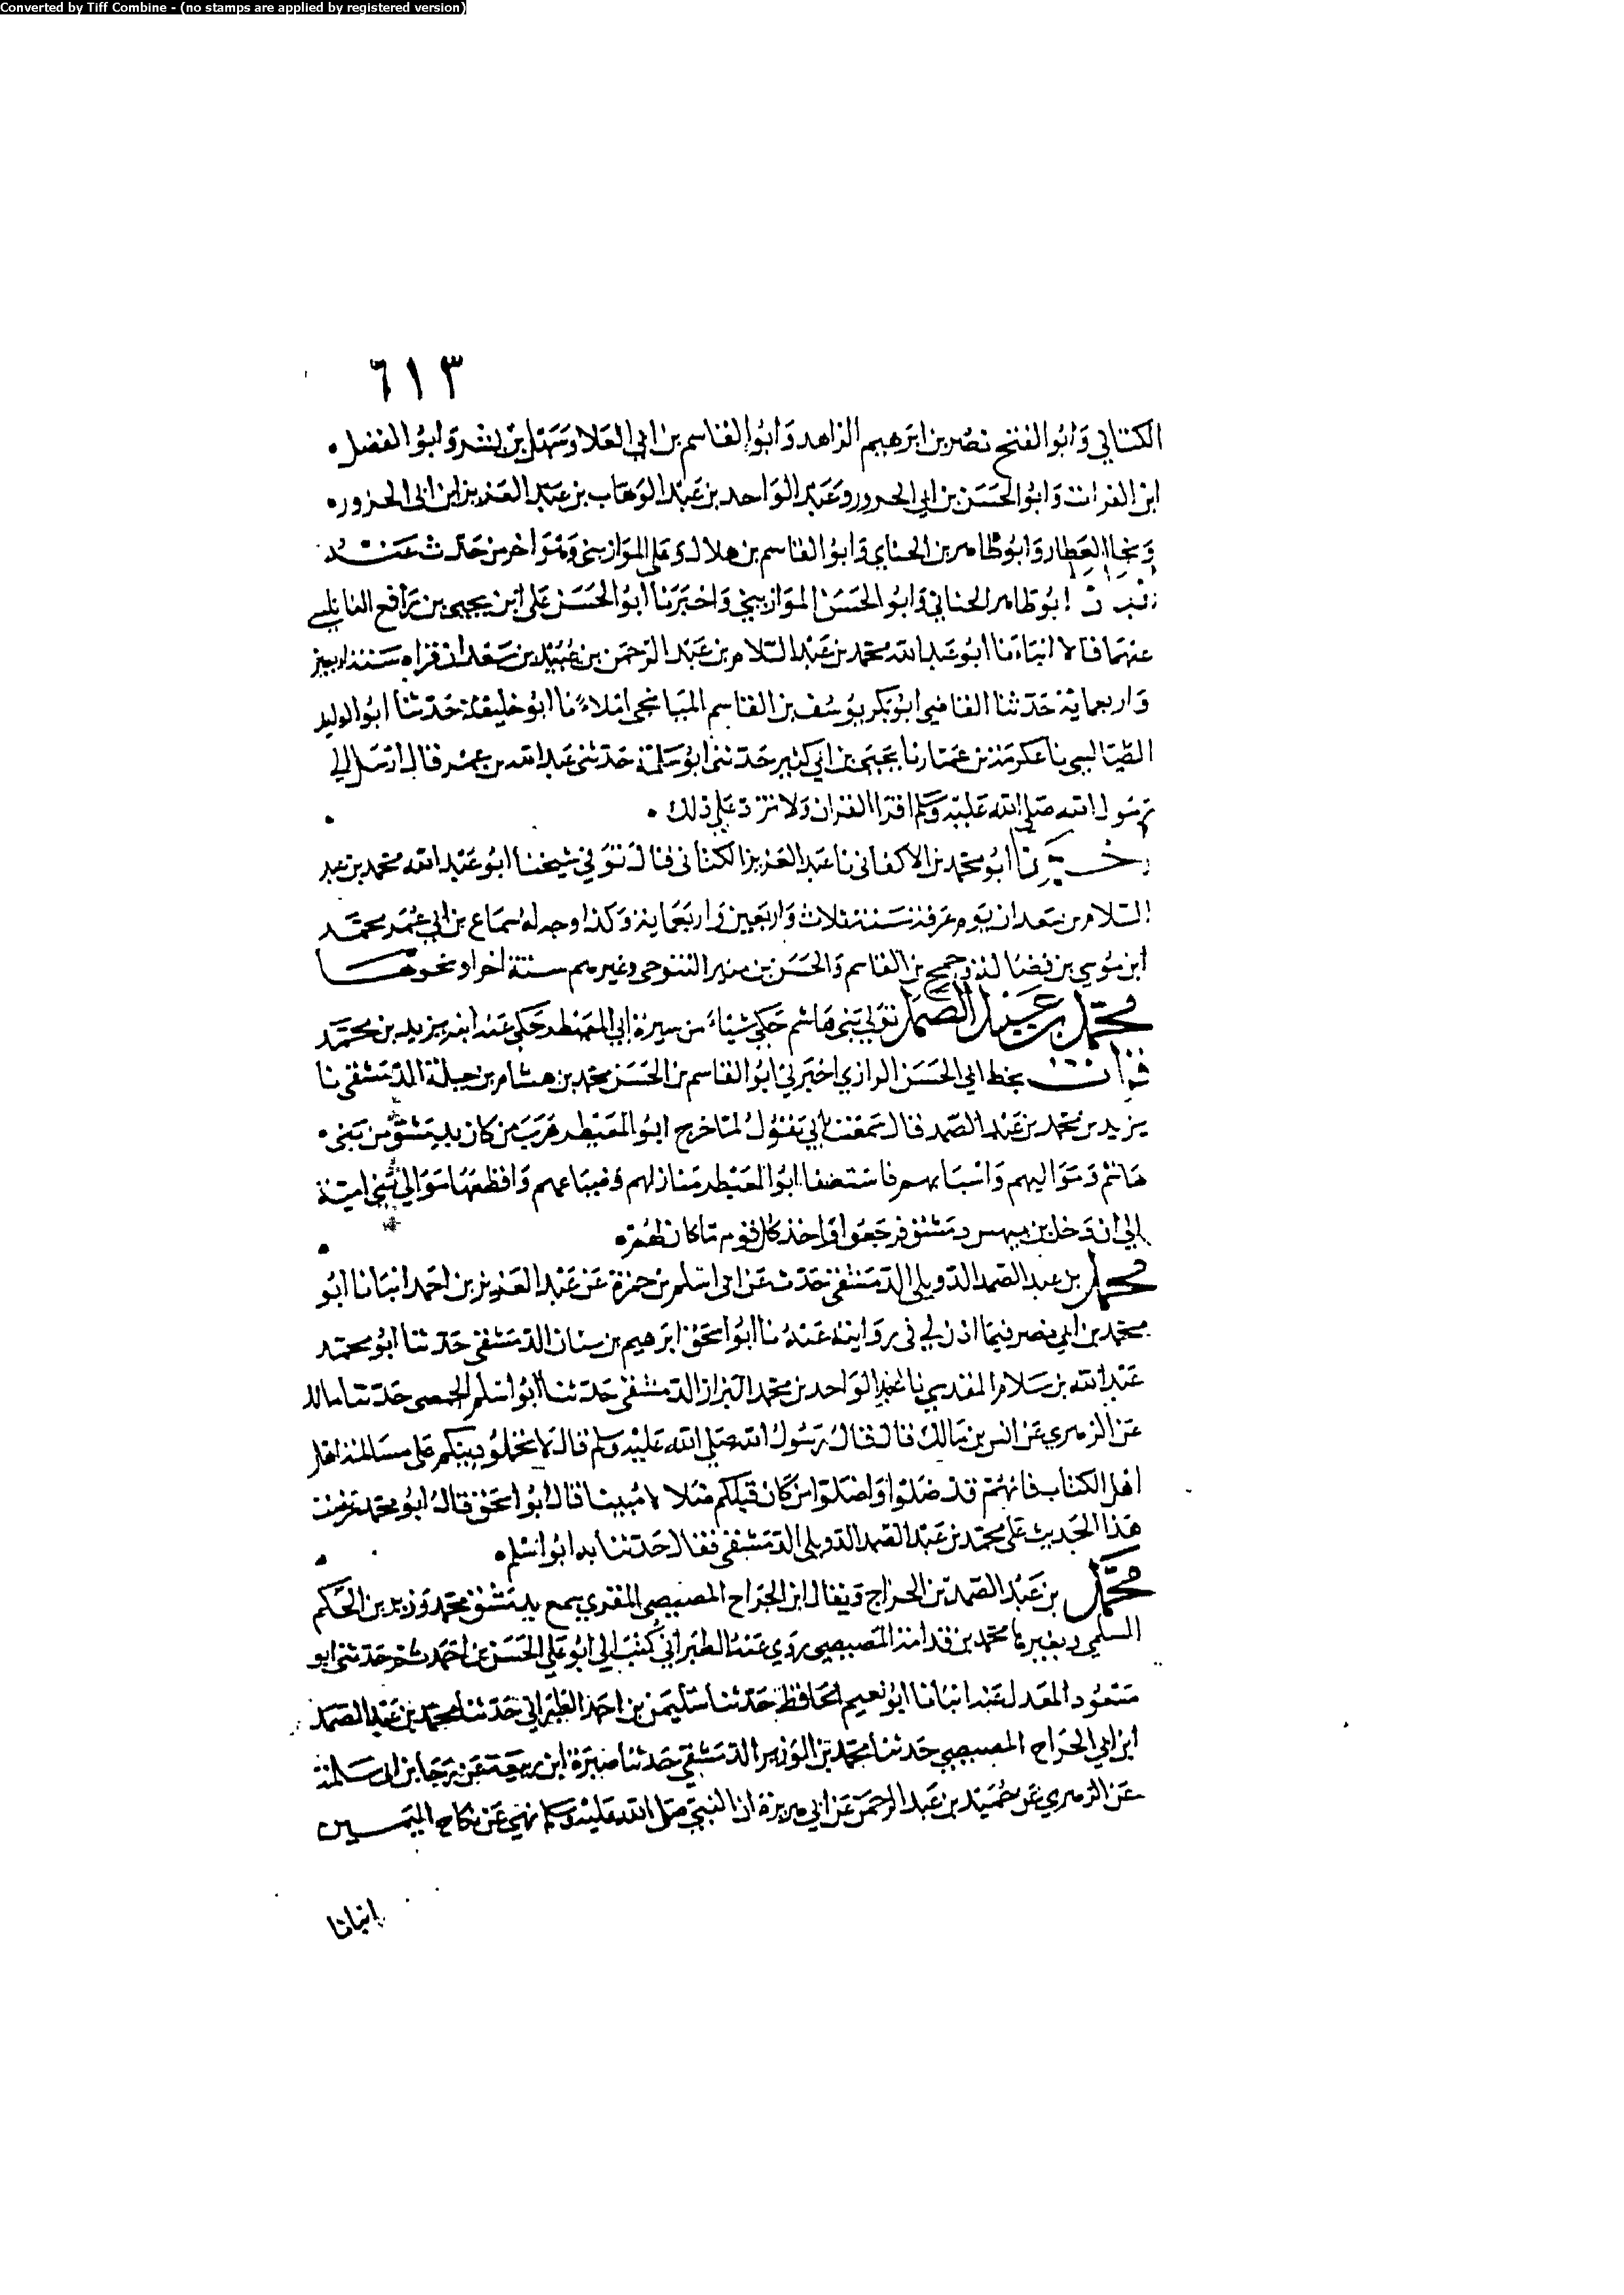 Converted by Tiff Combine - (no stamps are applied by registered version)
٦١٣
الكتاني وابو الفتح نصر بن ابرهيم الزاهد وابو القاسم بن ابي العلا وسهل بن بشر وابو الفضل
ابن الفرات وابو الحسن بن ابي الحرور وعبد الواحد بن عبد الوهاب بن عبد العزيز ابن ابي الحزور
ونجا العطار وابو طاهر بن الحناي وابو القاسم بن هلال وعلي الموازيني وهو اخر من حدث عنه
ابو طاهر الحناني وابو الحسن الموازيني واخبرنا ابو الحسن علي ابن يحيى بن رافع النابلسي
عنهما قالا انباءنا ابو عبد الله محمد بن عبد السلام بن عبد الرحمن بن عبيد بن سعدان قراه سنة اربعين
واربعماية حدثنا القاضي ابو بكر يوسف بن القاسم الميانجي املاء نا ابو خليفة حدثنا ابو الوليد
الطيالسي نا عكرمة بن عمار نا يحيى بن ابي كثير حدثني ابو سلمة حدثني عبد الله بن عمر قال ارسل الي
رسول الله صلى الله عليه وسلم اقرا القران ولا تزد علي ذلك
اخبرنا ابو محمد بن الاكفاني نا عبد العزيز الكتاني قال توفي شيخنا ابو عبد الله محمد بن عبد
السلام بن سعدان يوم عرفة سنة ثلاث واربعين واربعماية وكذا وجد له سماع بن ابي عمر محمد
ابن موسي بن فضالة وجمح بن القاسم والحسن بن منير التنوحي وغيرهم سنة اخرا ونحوها
محمد بن عبد الصمد تولي بني هاشم حكي شياء من سيرة ابي العميطر حكي عنه ابنه يزيد بن محمد
قرات بخط ابي الحسن الرازي اخبرني ابو القاسم بن الحسن محمد بن هشام بن جبلة الدمشقي نا
يزيد بن محمد بن عبد الصمد قال سمعت ابي يقول لما خرج ابو العميطر هرب من كان بدمشق من بني
هاشم ومواليهم واسبابهم فاستصفا ابو العميطر منازلهم وضياعهم واقطعها موالي بني امية
الي ان دخل بن بيهس دمشق فرجعوا واخذ كل قوم ما كان لهم
محمد بن عبد الصمد الدويلي الدمشقي حدث عن ابي اسلم بن حمزة عن عبد العزيز بن احمد انبانا ابو
محمد بن ابي نصر فيما اذن لي في روايته عنه نا ابو اسحق ابرهيم بن سنان الدمشقي حدثنا ابو محمد
عبد الله بن سلام المقدسي نا عبد الواحد بن محمد البزاز الدمشقي حدثنا ابو اسلم الحمصي حدثنا مالك
عن الزهري عن انس بن مالك قال قال رسول الله صلي الله عليه وسلم قال لا على مسالمة اهل
اهل الكتاب فانهم قد ضلوا واضلوا من كان قبلكم ضلالا مبينا قال ابو اسحق قال ابو محمد عرضت
هذا الحديث على محمد بن عبد الصمد الدويلي الدمشقي فقال حدثنا به ابو اسلم
محمد بن عبد الصمد بن الحراج ويقال ابن الجراح المصيصي المقري سمع بدمشق محمد وزير بن الحكم
السلمي وبغيرها محمد بن قدامة المصيصي روي عنه الطبراني كتب الي ابو علي الحسن بن احمد ثم حدثني ابو
مسعود المعدل عنه انبانا ابو نعيم الحافظ حدثنا سليمن بن احمد الطبراني حدثنا محمد بن عبد الصمد
ابن ابي الجراح المصيصي حدثنا محمد بن الوزير الدمشقي حدثنا ضمرة ابن ربيعة عن رجا بن ابي سلمة
عن الزهري عن حميد بن عبد الرحمن عن ابي هريرة ان النبي صلى الله عليه وسلم نهى عن نكاح
انبانا